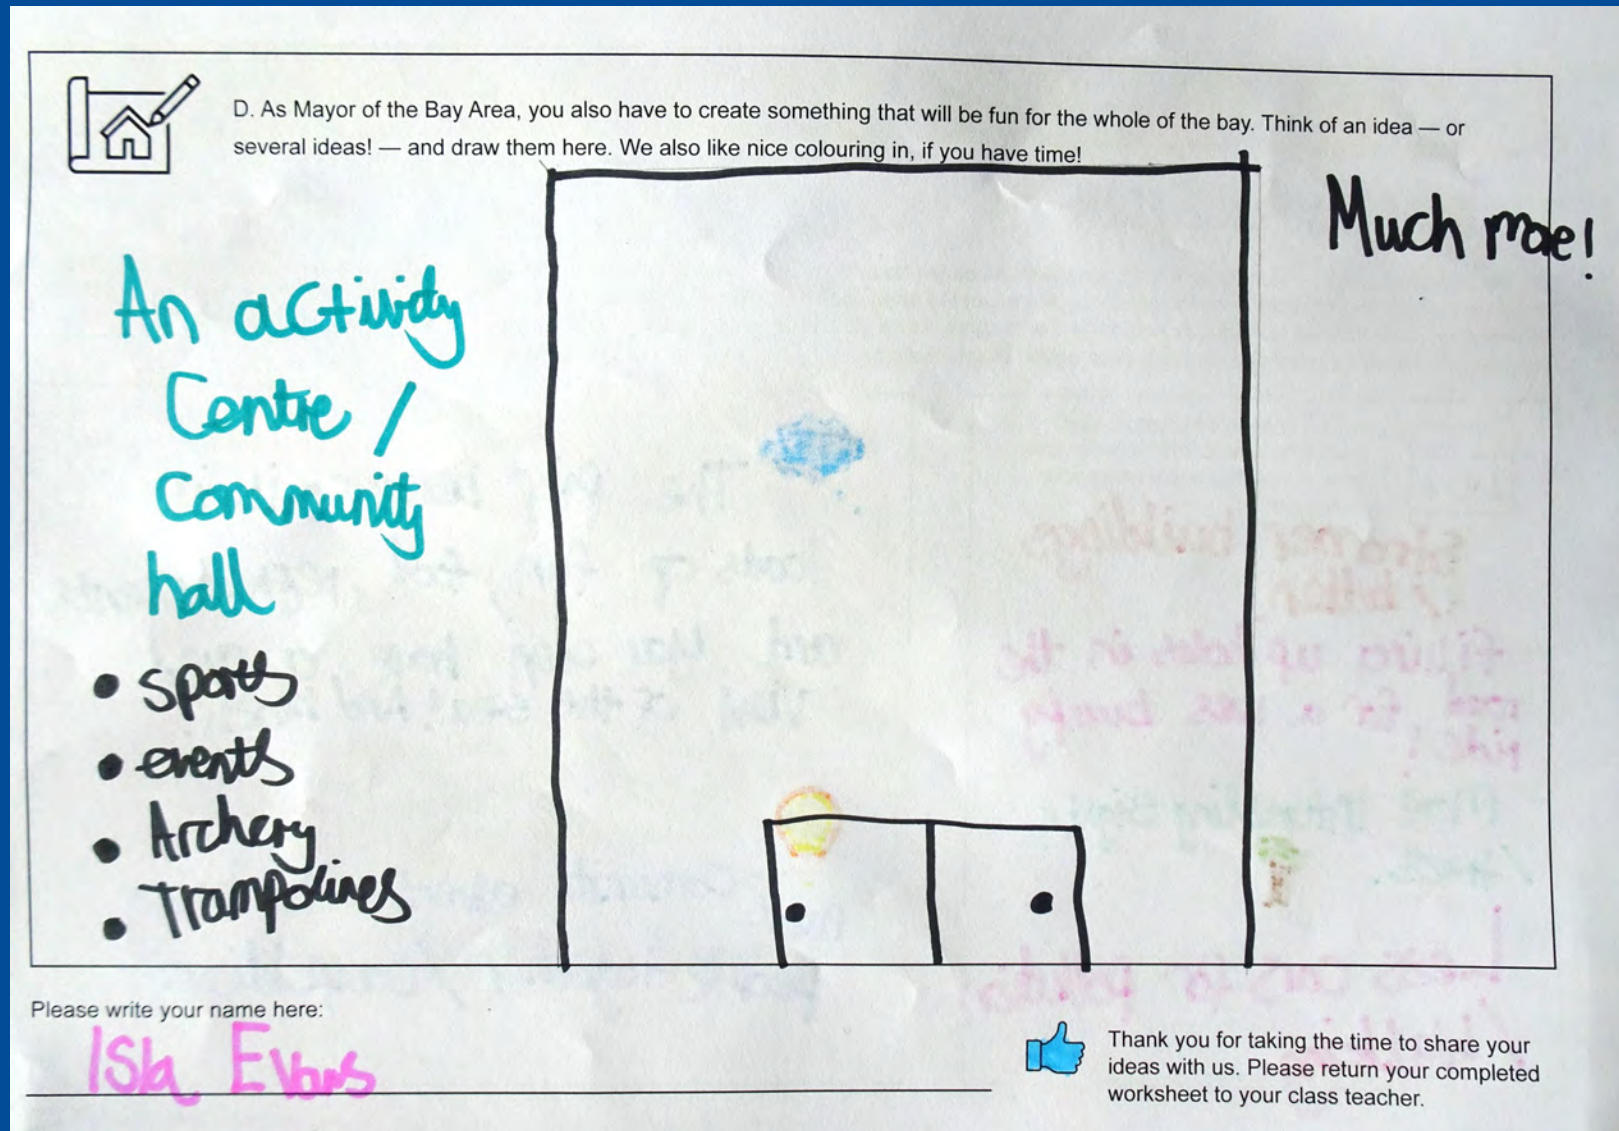 D. As Mayor of the Bay Area, you also have to create something that will be fun for the whole of the bay. Think of an idea — or
several ideas! — and draw them here. We also like nice colouring in, if you have time!
Much more!
An activity
Centre /
Community
hall
• sports
• events
• Archery
• Trampolines
Please write your name here:
Isla Evans
Thank you for taking the time to share your
ideas with us. Please return your completed
worksheet to your class teacher.